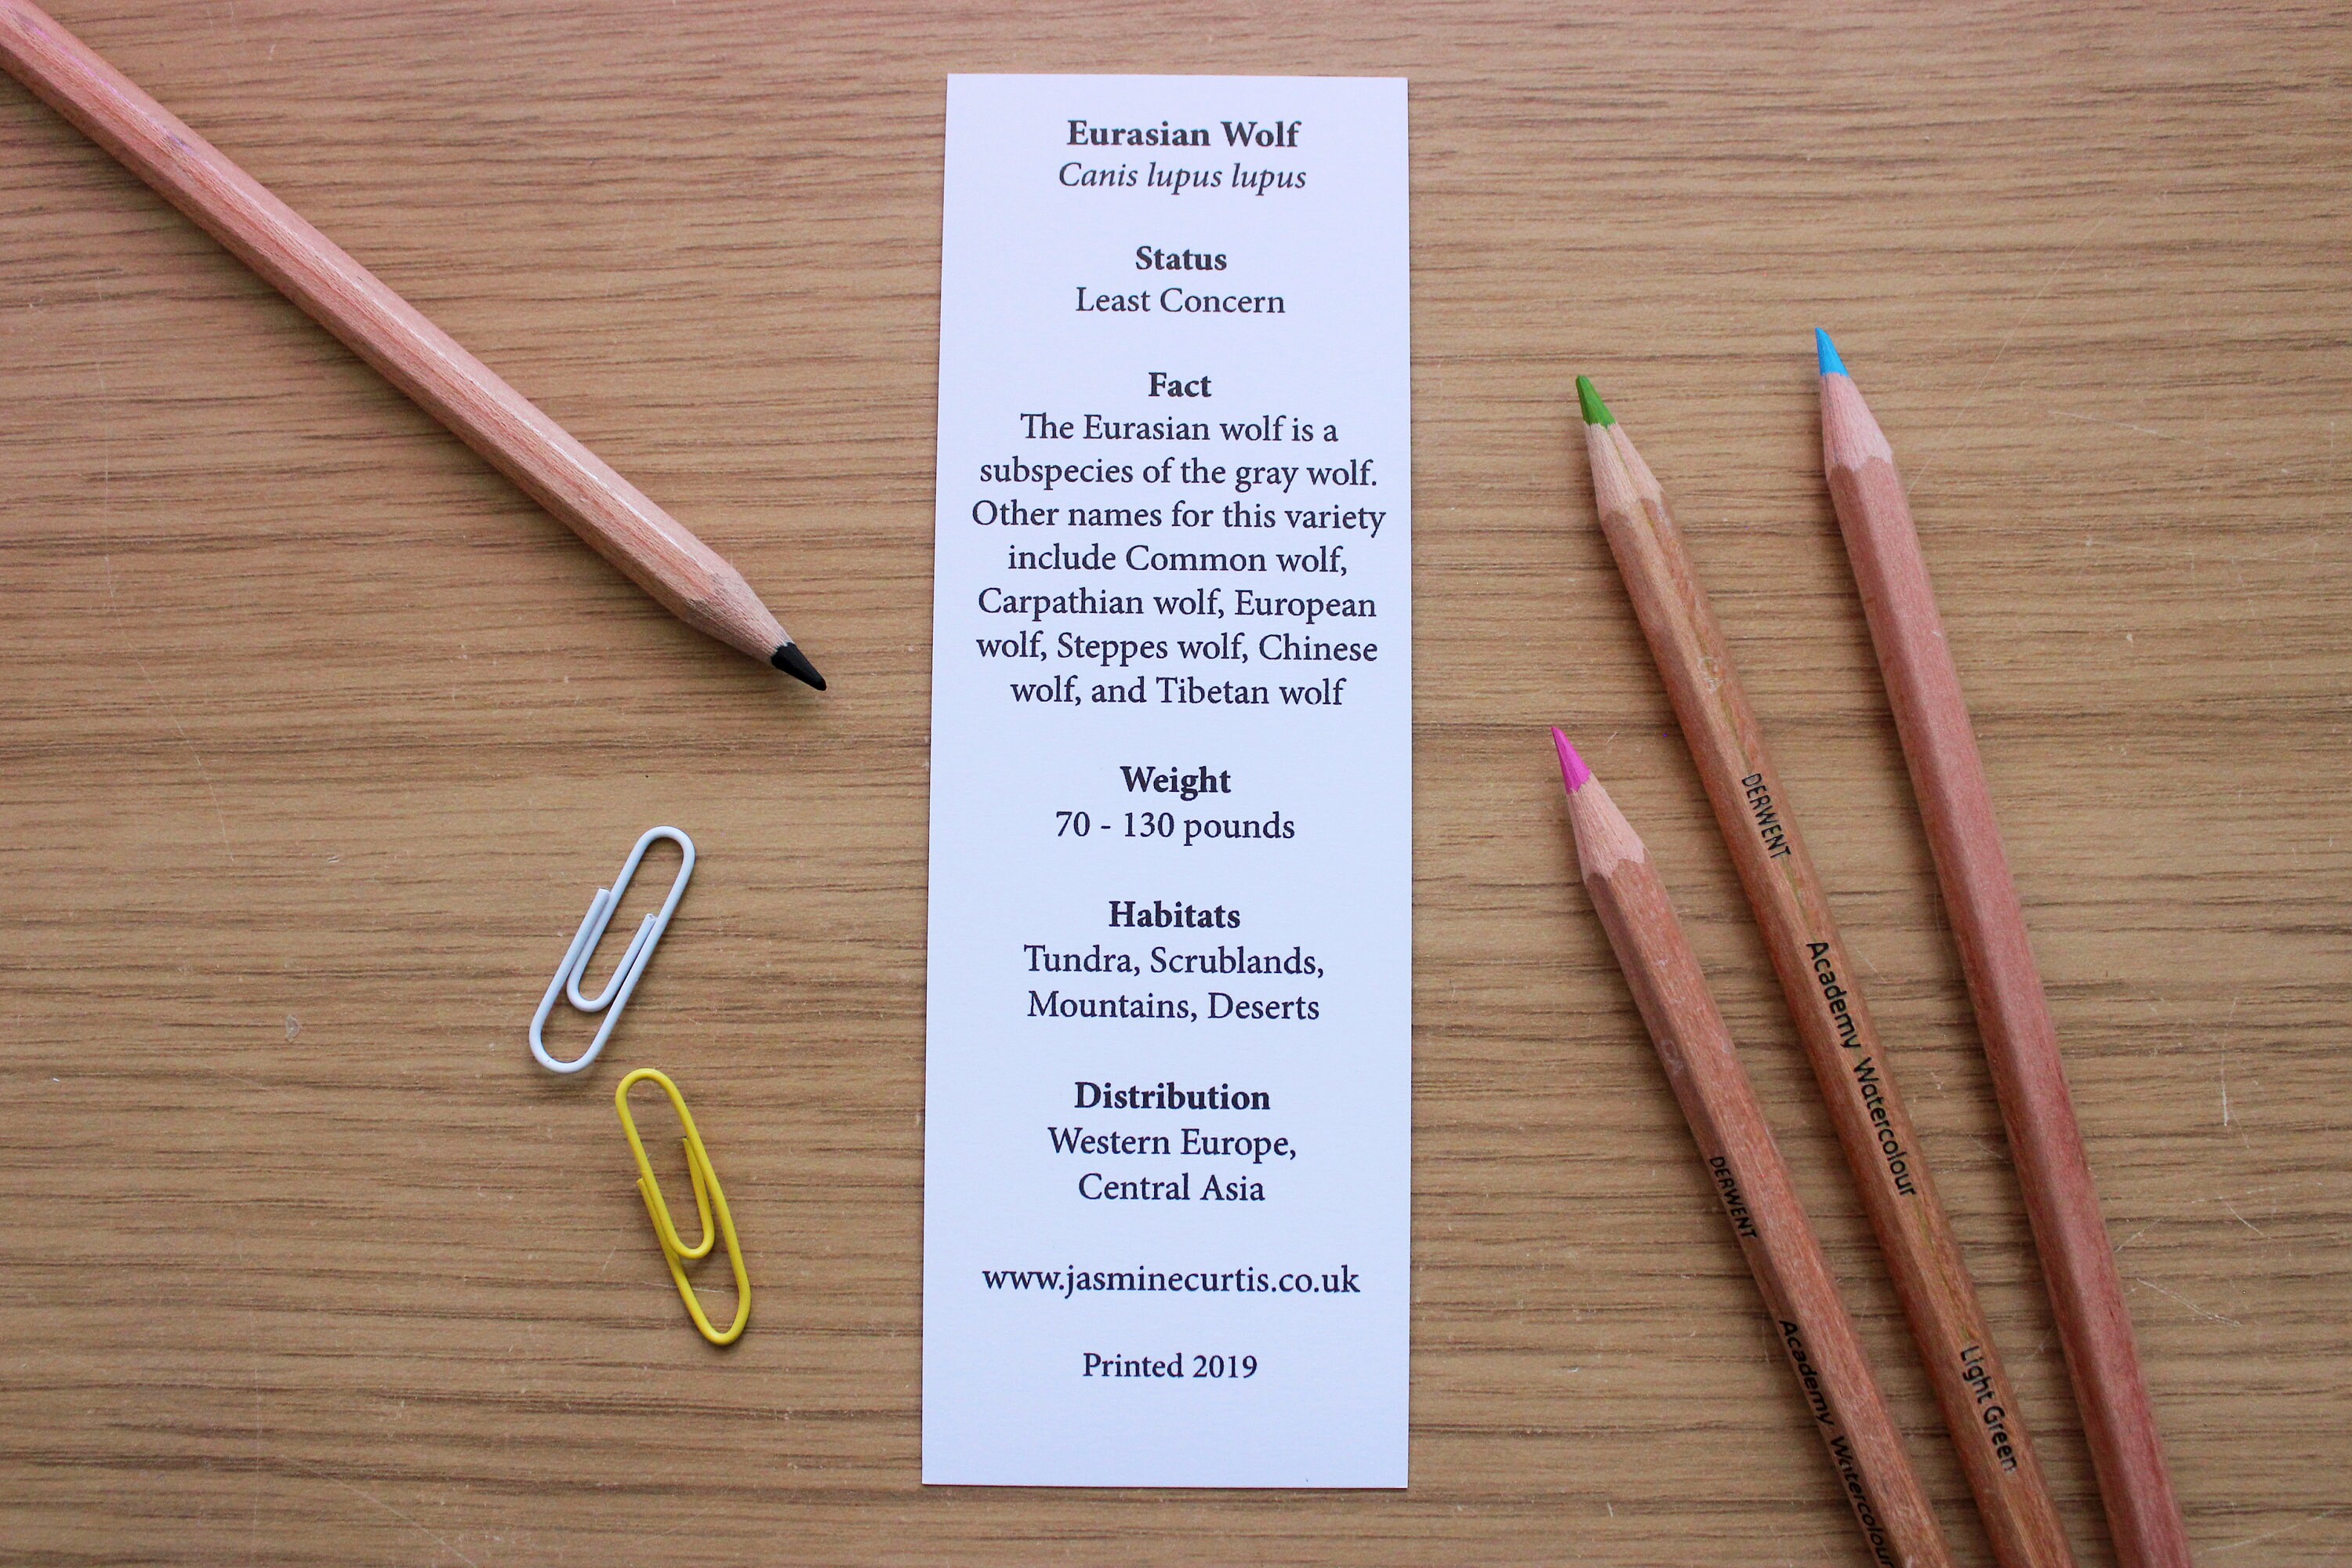 Eurasian Wolf
Canis lupus lupus
Status
Least Concern
Fact
The Eurasian wolf is a
subspecies of the gray wolf.
Other names for this variety
include Common wolf,
Carpathian wolf, European
wolf, Steppes wolf, Chinese
wolf, and Tibetan wolf
Weight
70 - 130 pounds
Habitats
Tundra, Scrublands,
Mountains, Deserts
Distribution
Western Europe,
Central Asia
www.jasminecurtis.co.uk
Printed 2019
DERWENT Academy Watercolour Light Green
DERWENT Academy Watercolour